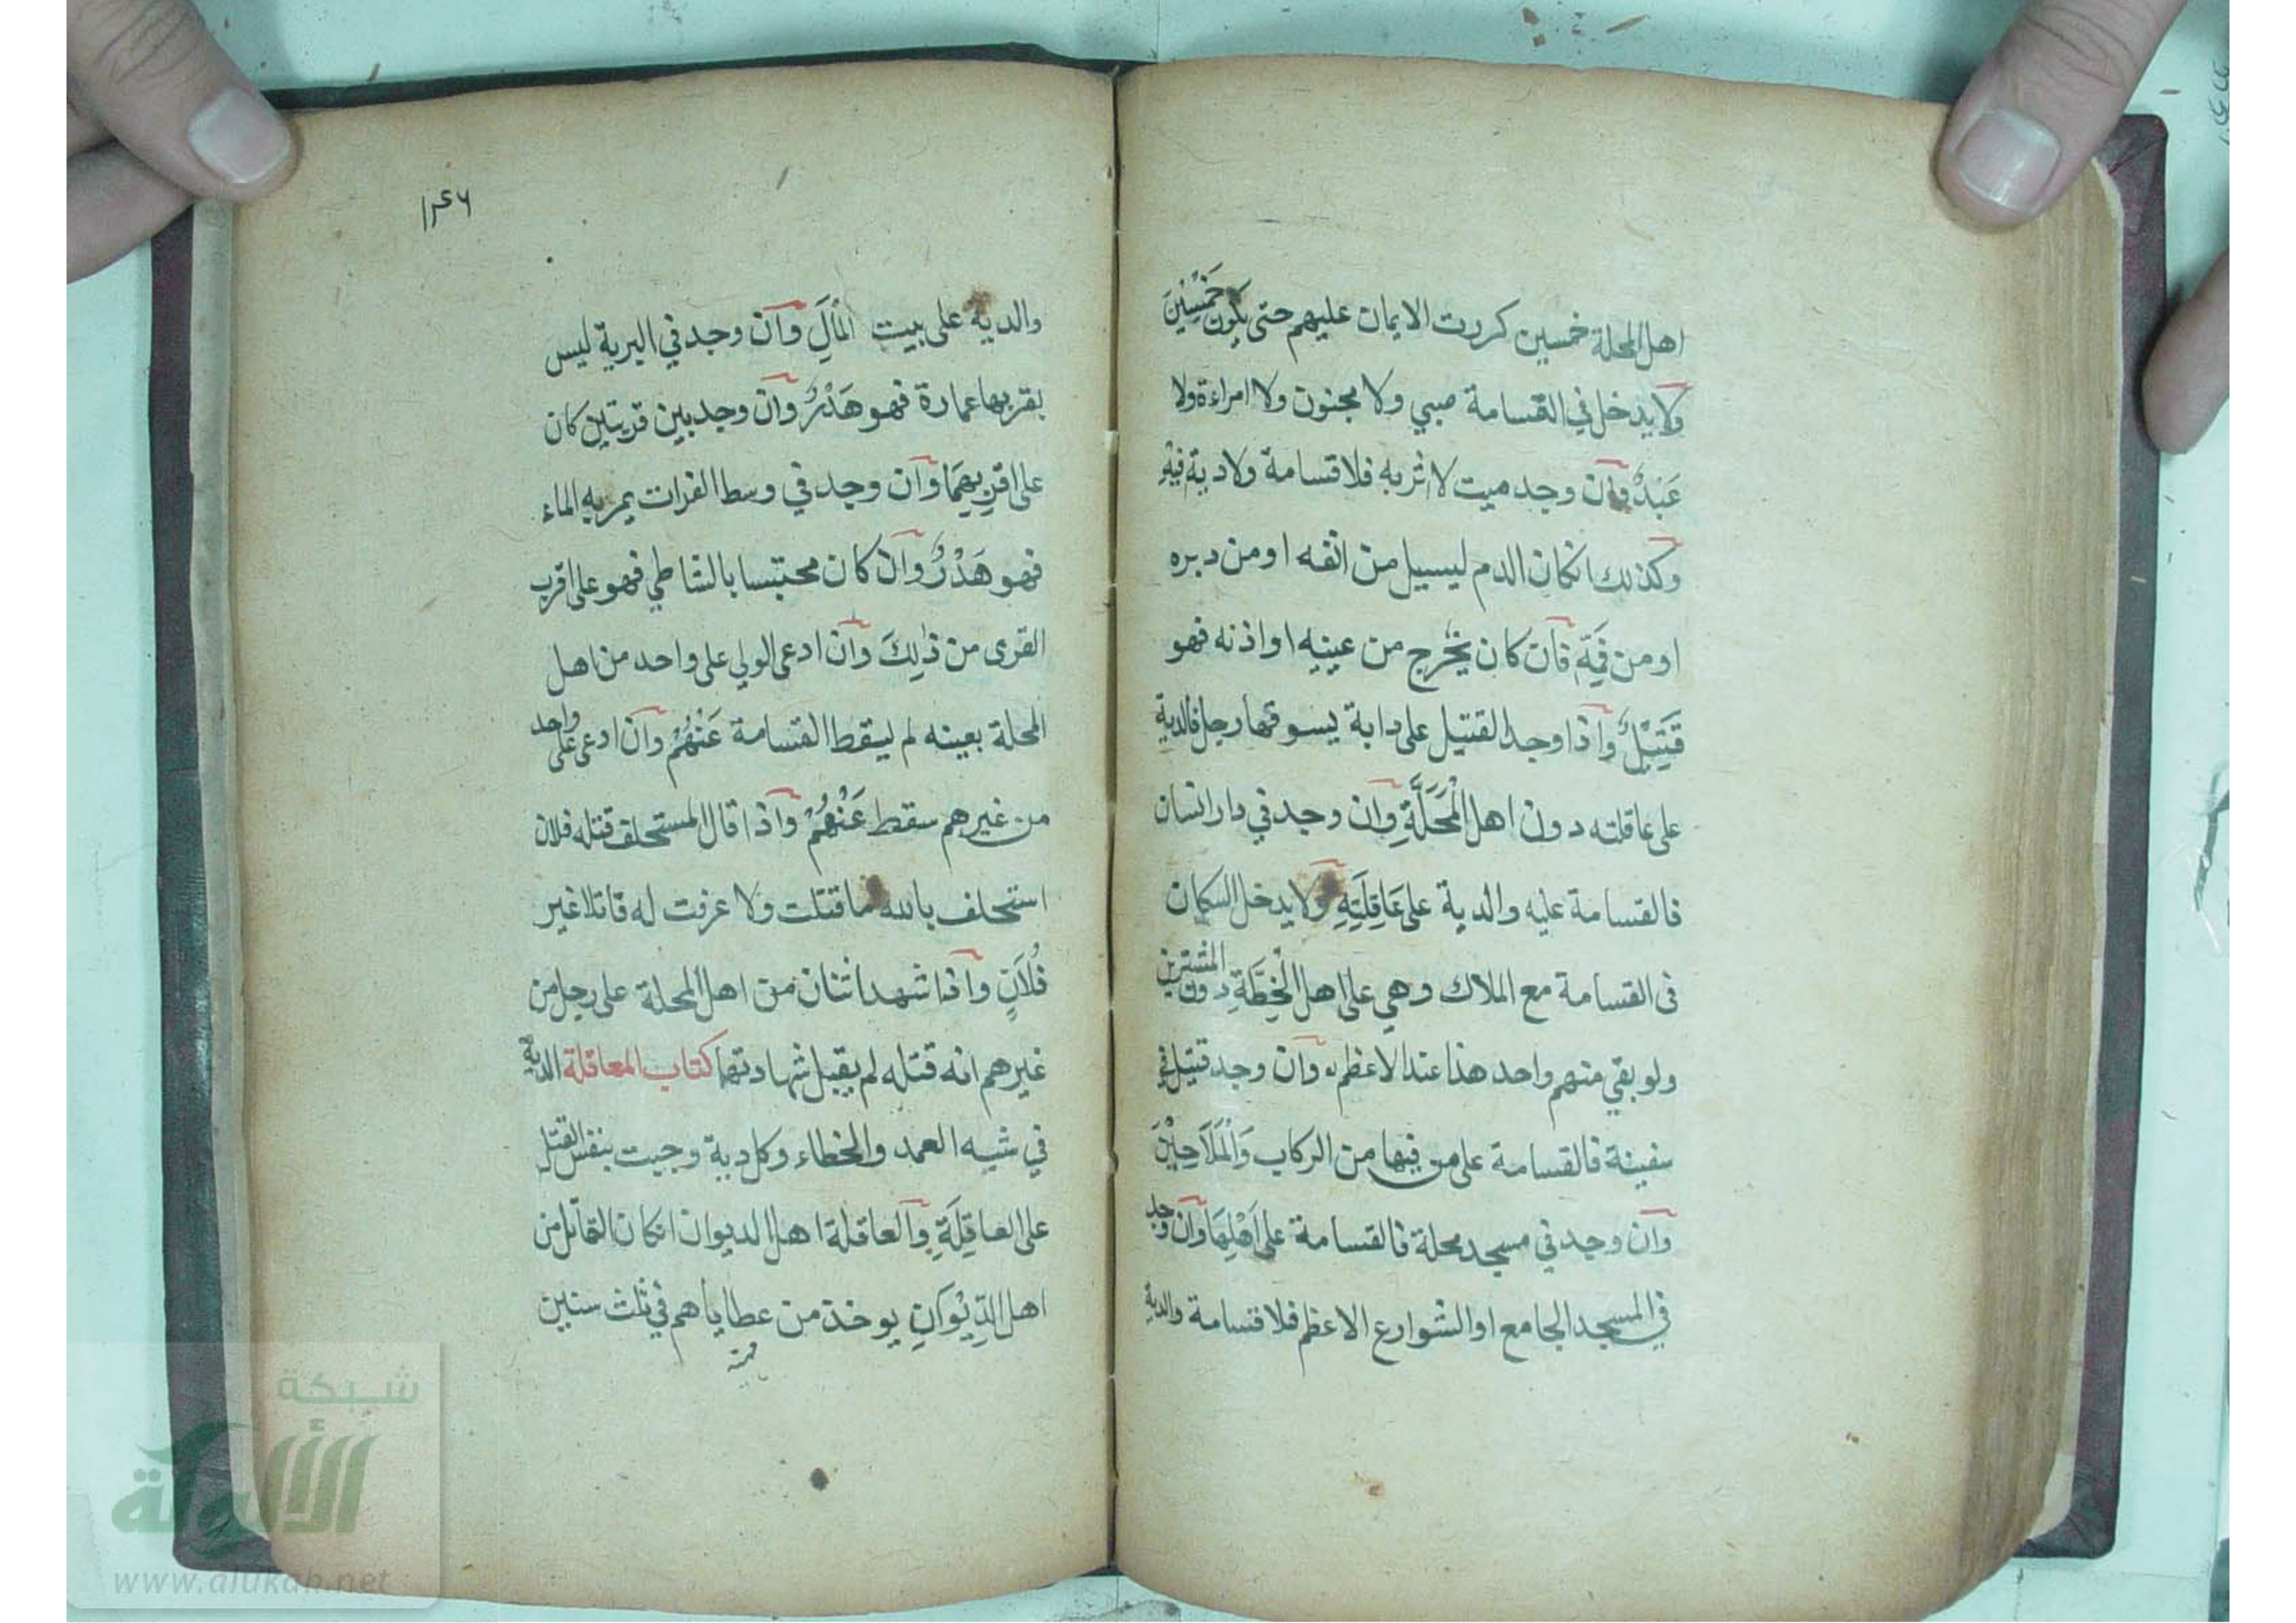 اهل المحلة خمسين كررت الايمان عليهم حتى يكون خَمْسِيْنَ
ولا يدخل في القسامة صبي ولا مجنون ولا امراءة ولا
عَبْدٌ وان وجد ميت لا اثر به فلا قسامة ولا دية فيْهِ
وكذلك انكان الدم ليسيل من انفه او من دبره
او من فَمِّهِ فان كان يَخْرج من عينيه او اذنه فهو
قَتِيْلٌ واذا وجد القتيل على دابة يسوقها رجل فالدية
على عاقلته دون اهل الْمَحَلَّةِ وان وجد في دار انسان
فالقسامة عليه والدية على عَاقِلَتِهِ ولا يدخل السكان
في القسامة مع الملاك وهي على اهل الْخِطَّةِ دون المشترين
ولو بقي منهم واحد هذا عند الاعظم وان وجد قتيل في
سفينة فالقسامة على من فيها من الركاب وَالْمَلَاحِيْنَ
وان وجد في مسجد محلة فالقسامة على اَهْلِهَا وان وجد
في المسجد الجامع او الشوارع الاعظم فلا قسامة والدية
١٤٦
والدية على بيت المَالِ وان وجد في البرية ليس
بقربها عمارة فهو هَدْرٌ وان وجد بين قريتين كان
على اقرِبِهِمَا وان وجد في وسط الفرات يمر به الماء
فهو هَدْرٌ وان كان محتبسا بالشاطي فهو على اقرب
القرى من ذٰلِكَ وان ادعى الولي على واحد من اهل
المحلة بعينه لم يسقط القسامة عَنْهُمْ وان ادعى على واحد
من غيرهم سقط عَنْهُمْ واذا قال المستحلف قتله فلان
استحلف بالله ما قتلت ولا عرفت له قاتلا غير
فُلَانٍ واذا شهد اثنان من اهل المحلة على رجل من
غيرهم انه قتله لم يقبل شهادتهما كتاب المعاقلة الدية
في شبه العمد والخطاء وكل دية وجبت بنفس القتل
على العاقِلَةِ والعاقلة اهل الديوان انكان القاتل من
اهل الدِّيْوَانِ يوخذ من عطاياهم في ثلث سنين
شبكة
الألوكة
www.alukah.net